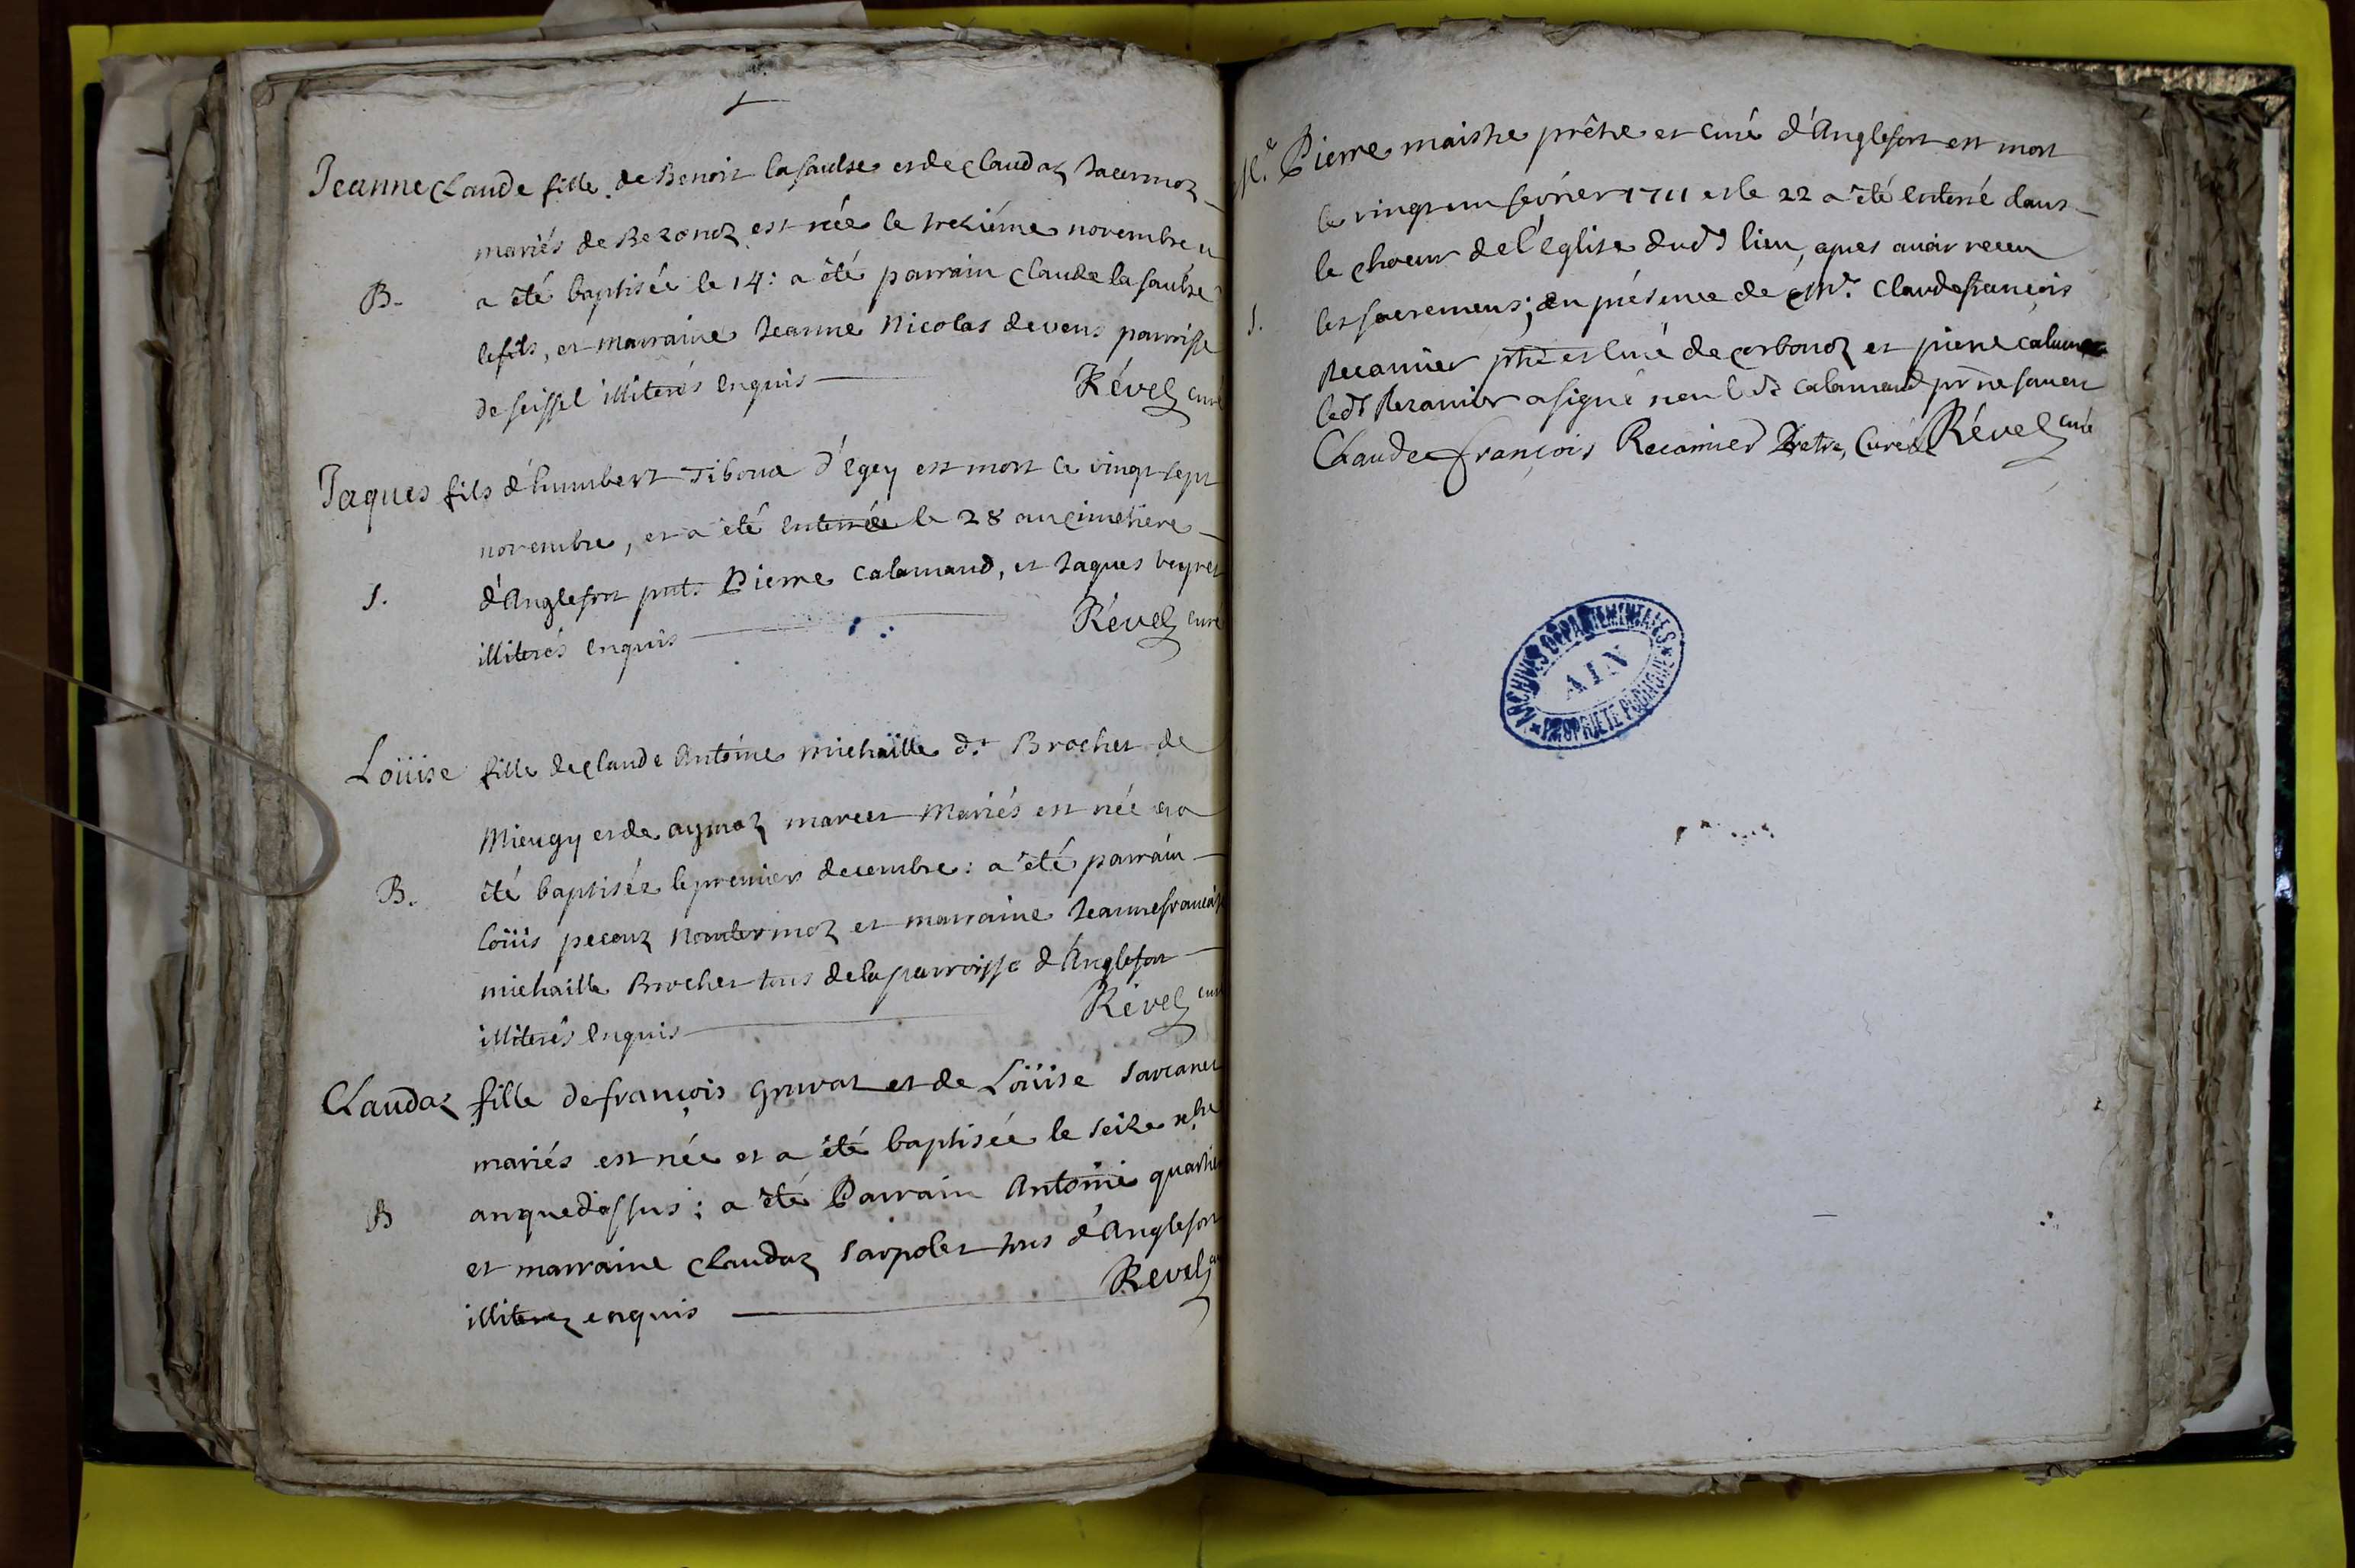 Jeanne Claude fille de Benoit lasaulse et de Claudaz Jacermoz
mariés de Bezonoz est née le trexiéme novembre
B. a été baptisée le 14: a été parrain Claude la saulse
le fils, et marraine Jeanne Nicolas de vens parroisse
de seissel illiterés enquis Révél curé
Jaques fils d'humbert Tiboud d'Egey est mort le vingt sept
novembre, et a été enterrée le 28 au cimetiere
S. d'Anglefort pnts Pierre Calamand, et Jaques veyret
illiterés enquis Révél curé
Loüise fille de Claude Antoine michaille dt Brochet de
Mieugy et de aymoz marcet Mariés est née et a
B. été baptisée le premier decembre: a été parrain
Loüis pecouz et marraine Jeanne francoise
michaille Brochet tous de la parroisse d'Anglefort
illiterés enquis Révél curé
Claudaz fille de françois gruvat et de Loüise Sarcanet
mariés est née et a été baptisée le seize xbre
B an que dessus: a été Parrain Antoine quartier
et marraine Claudaz Sarpolet tous d'Anglefort
illiterez enquis Révél
Mre Pierre maistre prêtre et curé d'Anglefort est mort
le vingt un fevrier 1711 et le 22 a été enterré dans
le choeur de l'église dudt lieu, apres avoir receu
S. les sacremens; en présence de Mr. Claude françois
Recamier ptre et curé de corbonoz et pierre calamand
ledt Recamier a signé non le dt calamand pr ne savoir
Claude François Recamier Pretre, Curé Révél curé
ARCHIVES DÉPARTEMENTALES
AIN
PROPRIÉTÉ PUBLIQUE